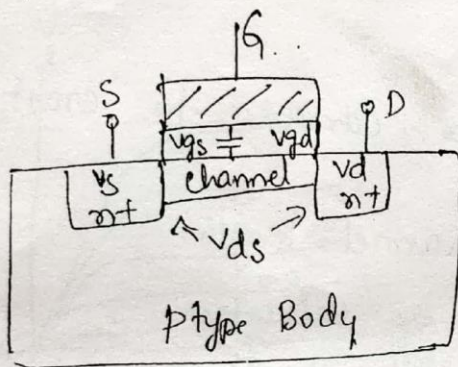 G..
S
D
vgs vgd
vs channel vd
n+ n+
Vds
Ptype Body